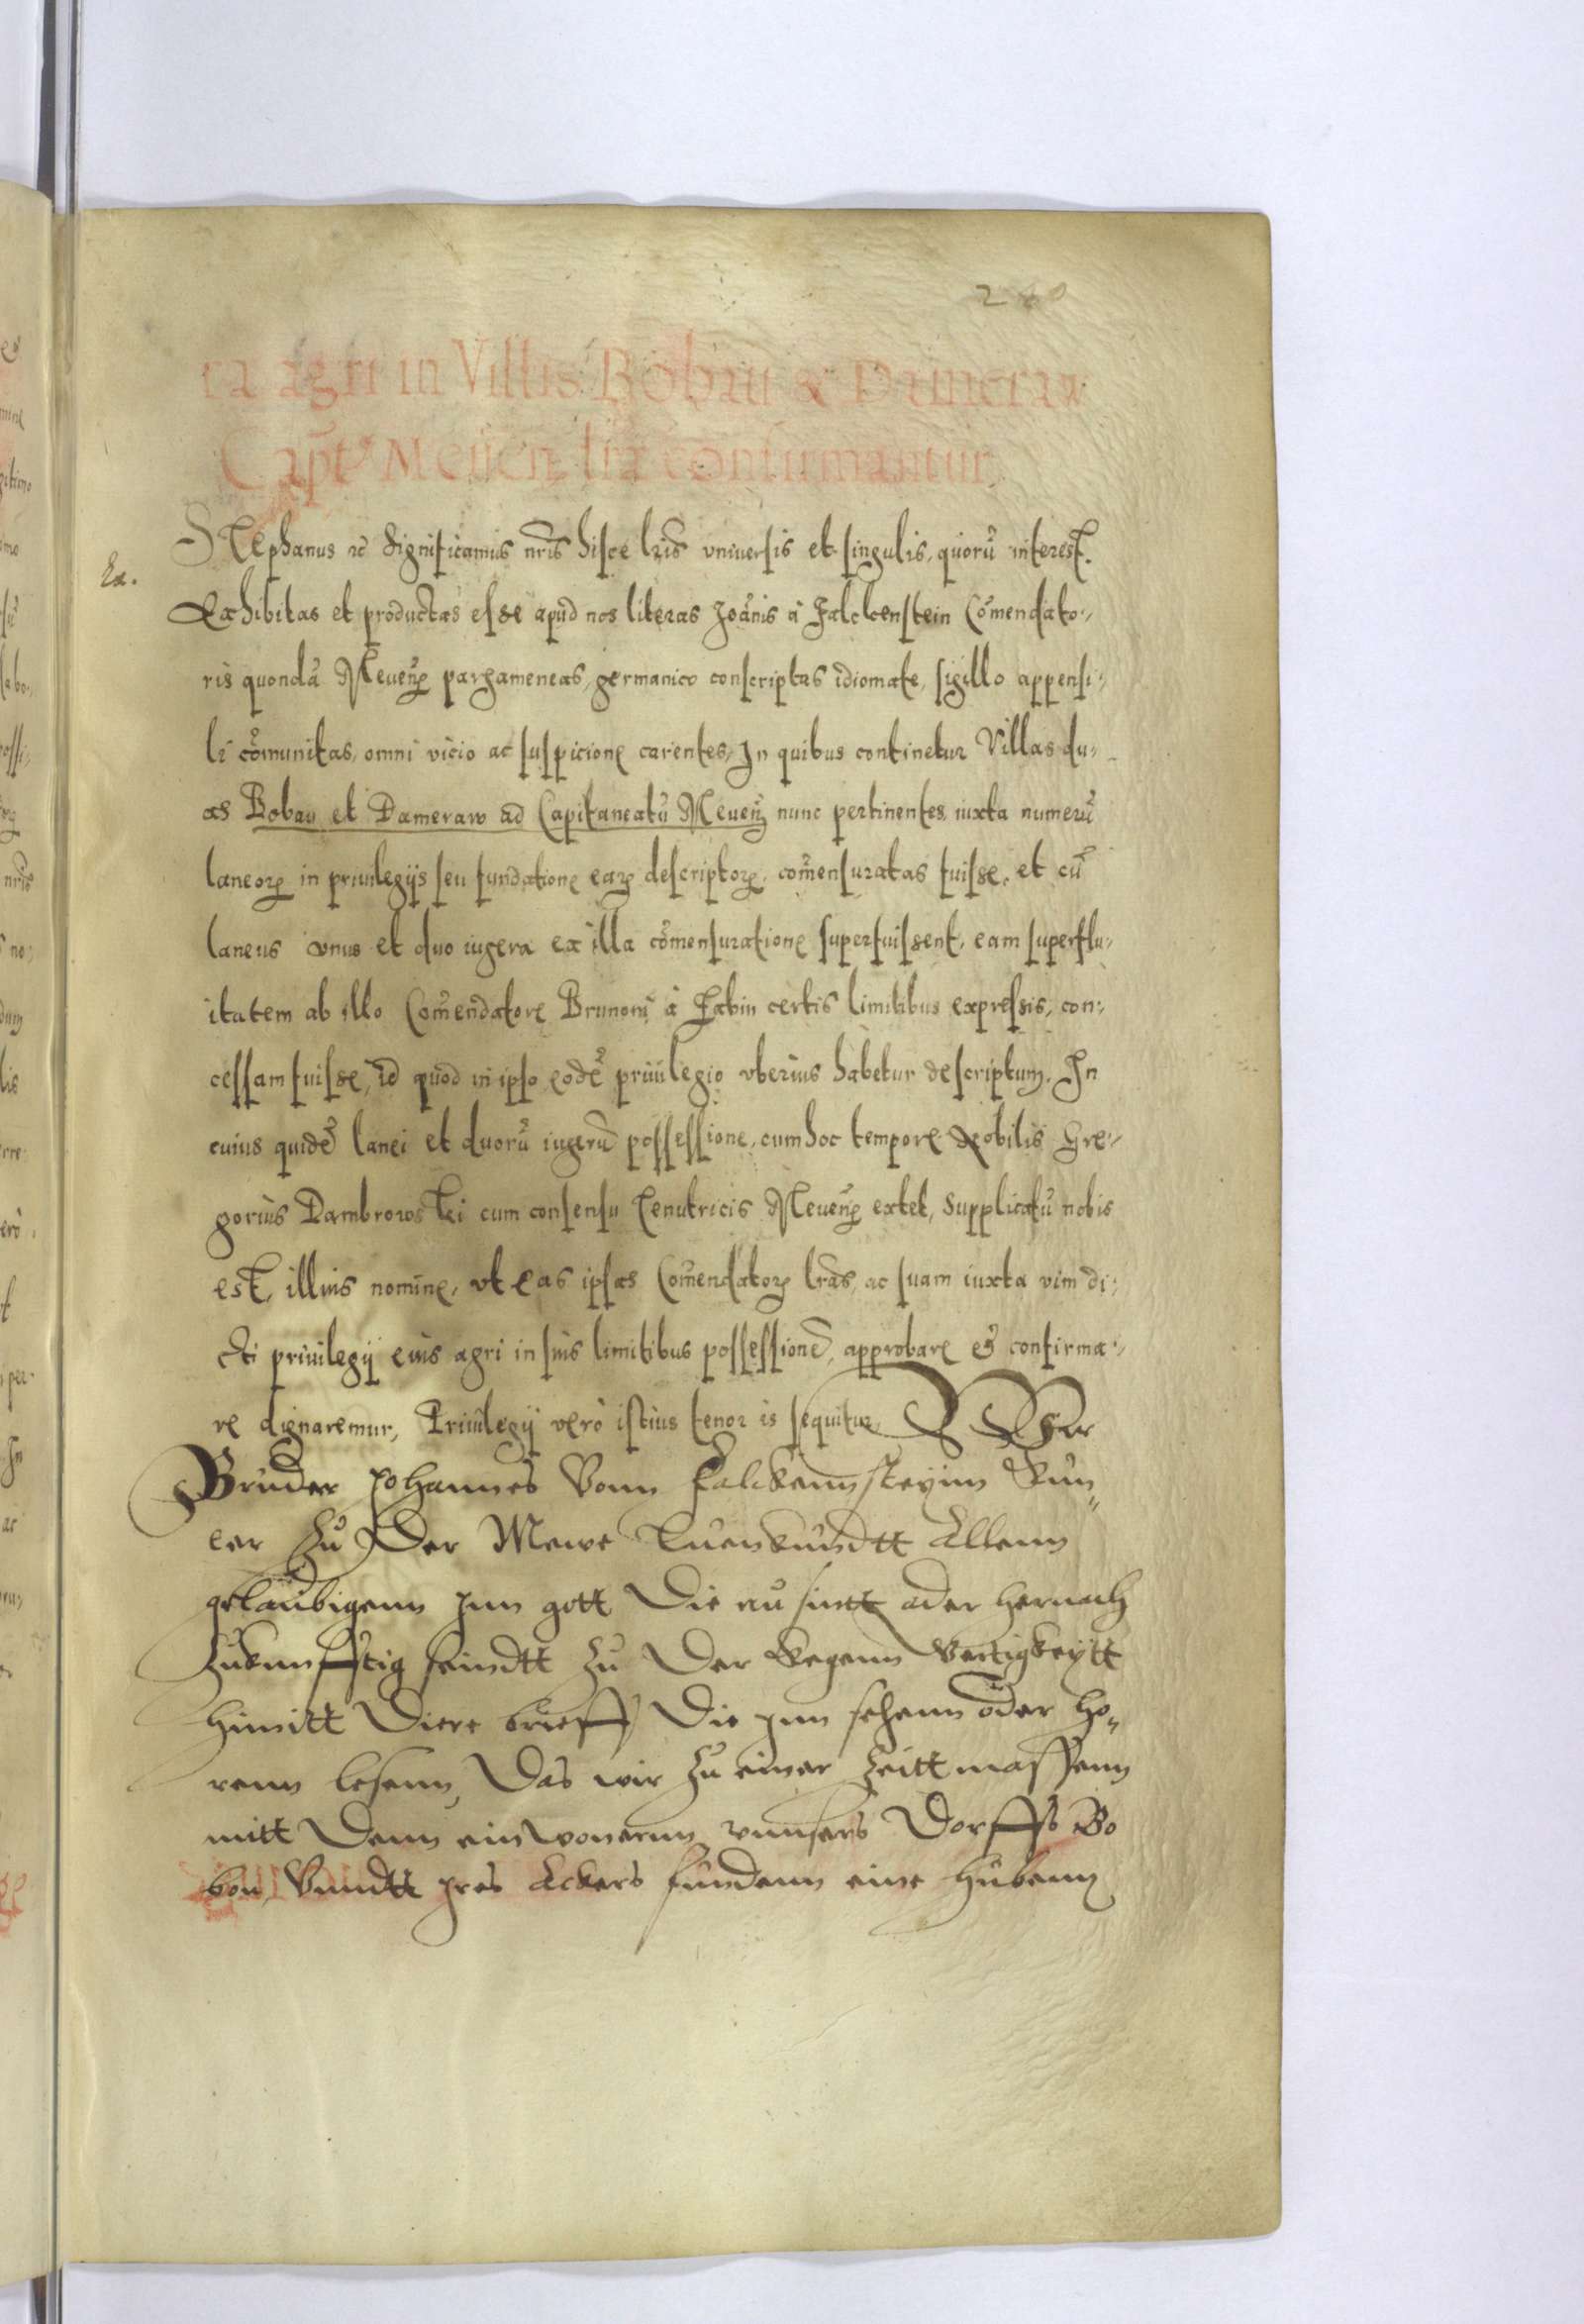 280
ra agri in Villis Bobau & Dameraw
Capt9 Meueñ lrȩ confirmantur
STephanus ꝛc̃ Significamus nr̃is hisce lrĩs vniuersis et singulis, quorũ interest.
Ex.
Exhibitas et productas esse apud nos literas Joãnis à Falckenstein Cõmendato-
ris quondã Meueñ pargameneas, germanico conscriptas idiomate, sigillo appensi-
li cõmunitas, omni vicio ac suspicione carentes, In quibus continetur Villas du-
as Bobau et Dameraw ad Capitaneatũ Meueñ nunc pertinentes iuxta numerũ
laneorꝝ in priuilegijs seu fundatione earꝝ descriptorꝝ, com̃ensuratas fuisse, et cũ
laneus vnus et duo iugera ex illa cõmensuratione superfuissent, eam superflu-
itatem ab illo Com̃endatore Brunoni à Fabin certis limitibus expressis, con-
cessam fuisse, id quod in ipso eodẽ priuilegio vberius habetur descriptum. In
cuius quidẽ lanei et duorũ iugerũ possessione, cum hoc tempore Nobilis Gre-
gorius Dambrowski cum consensu Tenutricis Meueñ extet, supplicatũ nobis
est, illius nomine, vt eas ipsas Com̃endatorꝝ lrãs, ac suam iuxta vim di-
cti priuilegij eius agri in suis limitibus possessionẽ, approbare et confirma-
re dignaremur, Priuilegij verò istius tenor is sequitur, Wyr
Bruder Johannes Vonn Falckennsteyinn Kun-
ter Zu Der Mewe Tuenkundtt Allenn
gelaubigenn Inn gott Die nu sintt ader hernach
Zukunfftig seindtt Zu Der kegenn Vertigkeytt
himitt Diere brieff Die Inn sehenn oder ho-
renn lesenn, Das wir Zu einer Zeitt massenn
mitt Denn einwonernn vnnsers Dorffs Bo
bou Vnndtt Jres Ackers fundenn eine hubenn